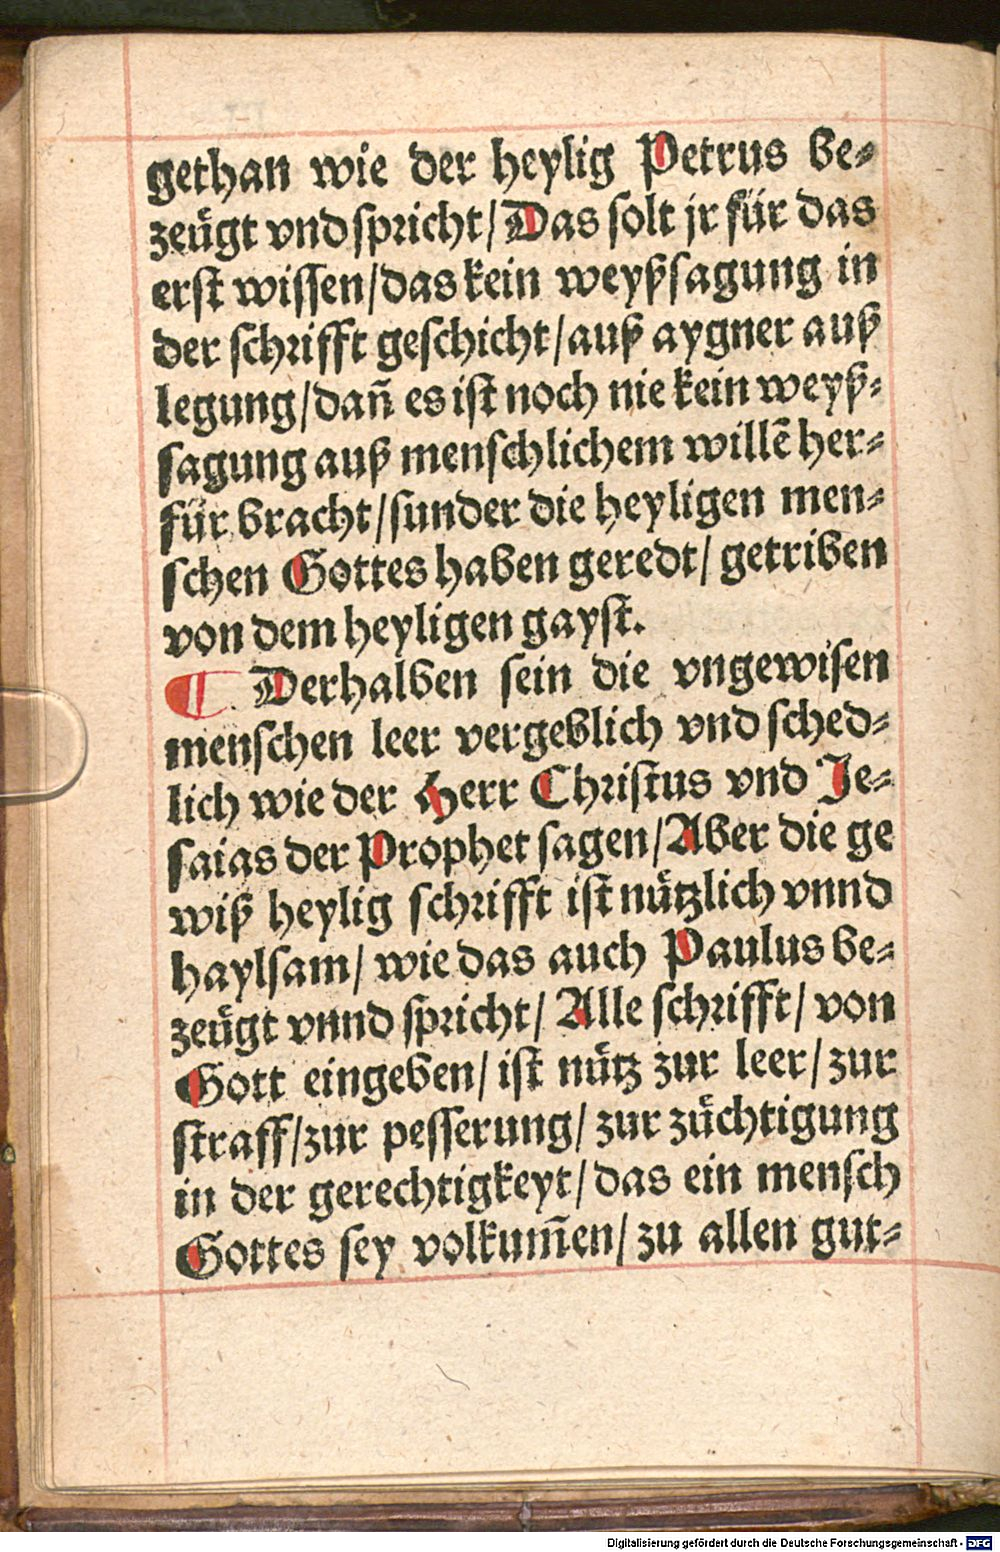 gethan wie der heylig Petrus be⸗
zeügt vnd spricht/ Das solt jr für das
erst wissen/ das kein weyßsagung in
der schrifft geschicht/ auß aygner auß
legung/ dañ es ist noch nie kein weyß⸗
sagung auß menschlichem willē her⸗
für bracht/ sunder die heyligen men⸗
schen Gottes haben geredt/ getriben
von dem heyligen gayst.
¶ Derhalben sein die vngewisen
menschen leer vergeblich vnd sched⸗
lich wie der Herr Christus vnd Je⸗
saias der Prophet sagen/ Aber die ge
wiß heylig schrifft ist nützlich vnnd
haylsam/ wie das auch Paulus be⸗
zeügt vnnd spricht/ Alle schrifft/ von
Gott eingeben/ ist nütz zur leer/ zur
straff/ zur pesserung/ zur züchtigung
in der gerechtigkeyt/ das ein mensch
Gottes sey volkum̄en/ zu allen gut⸗
Digitalisierung gefördert durch die Deutsche Forschungsgemeinschaft - DFG